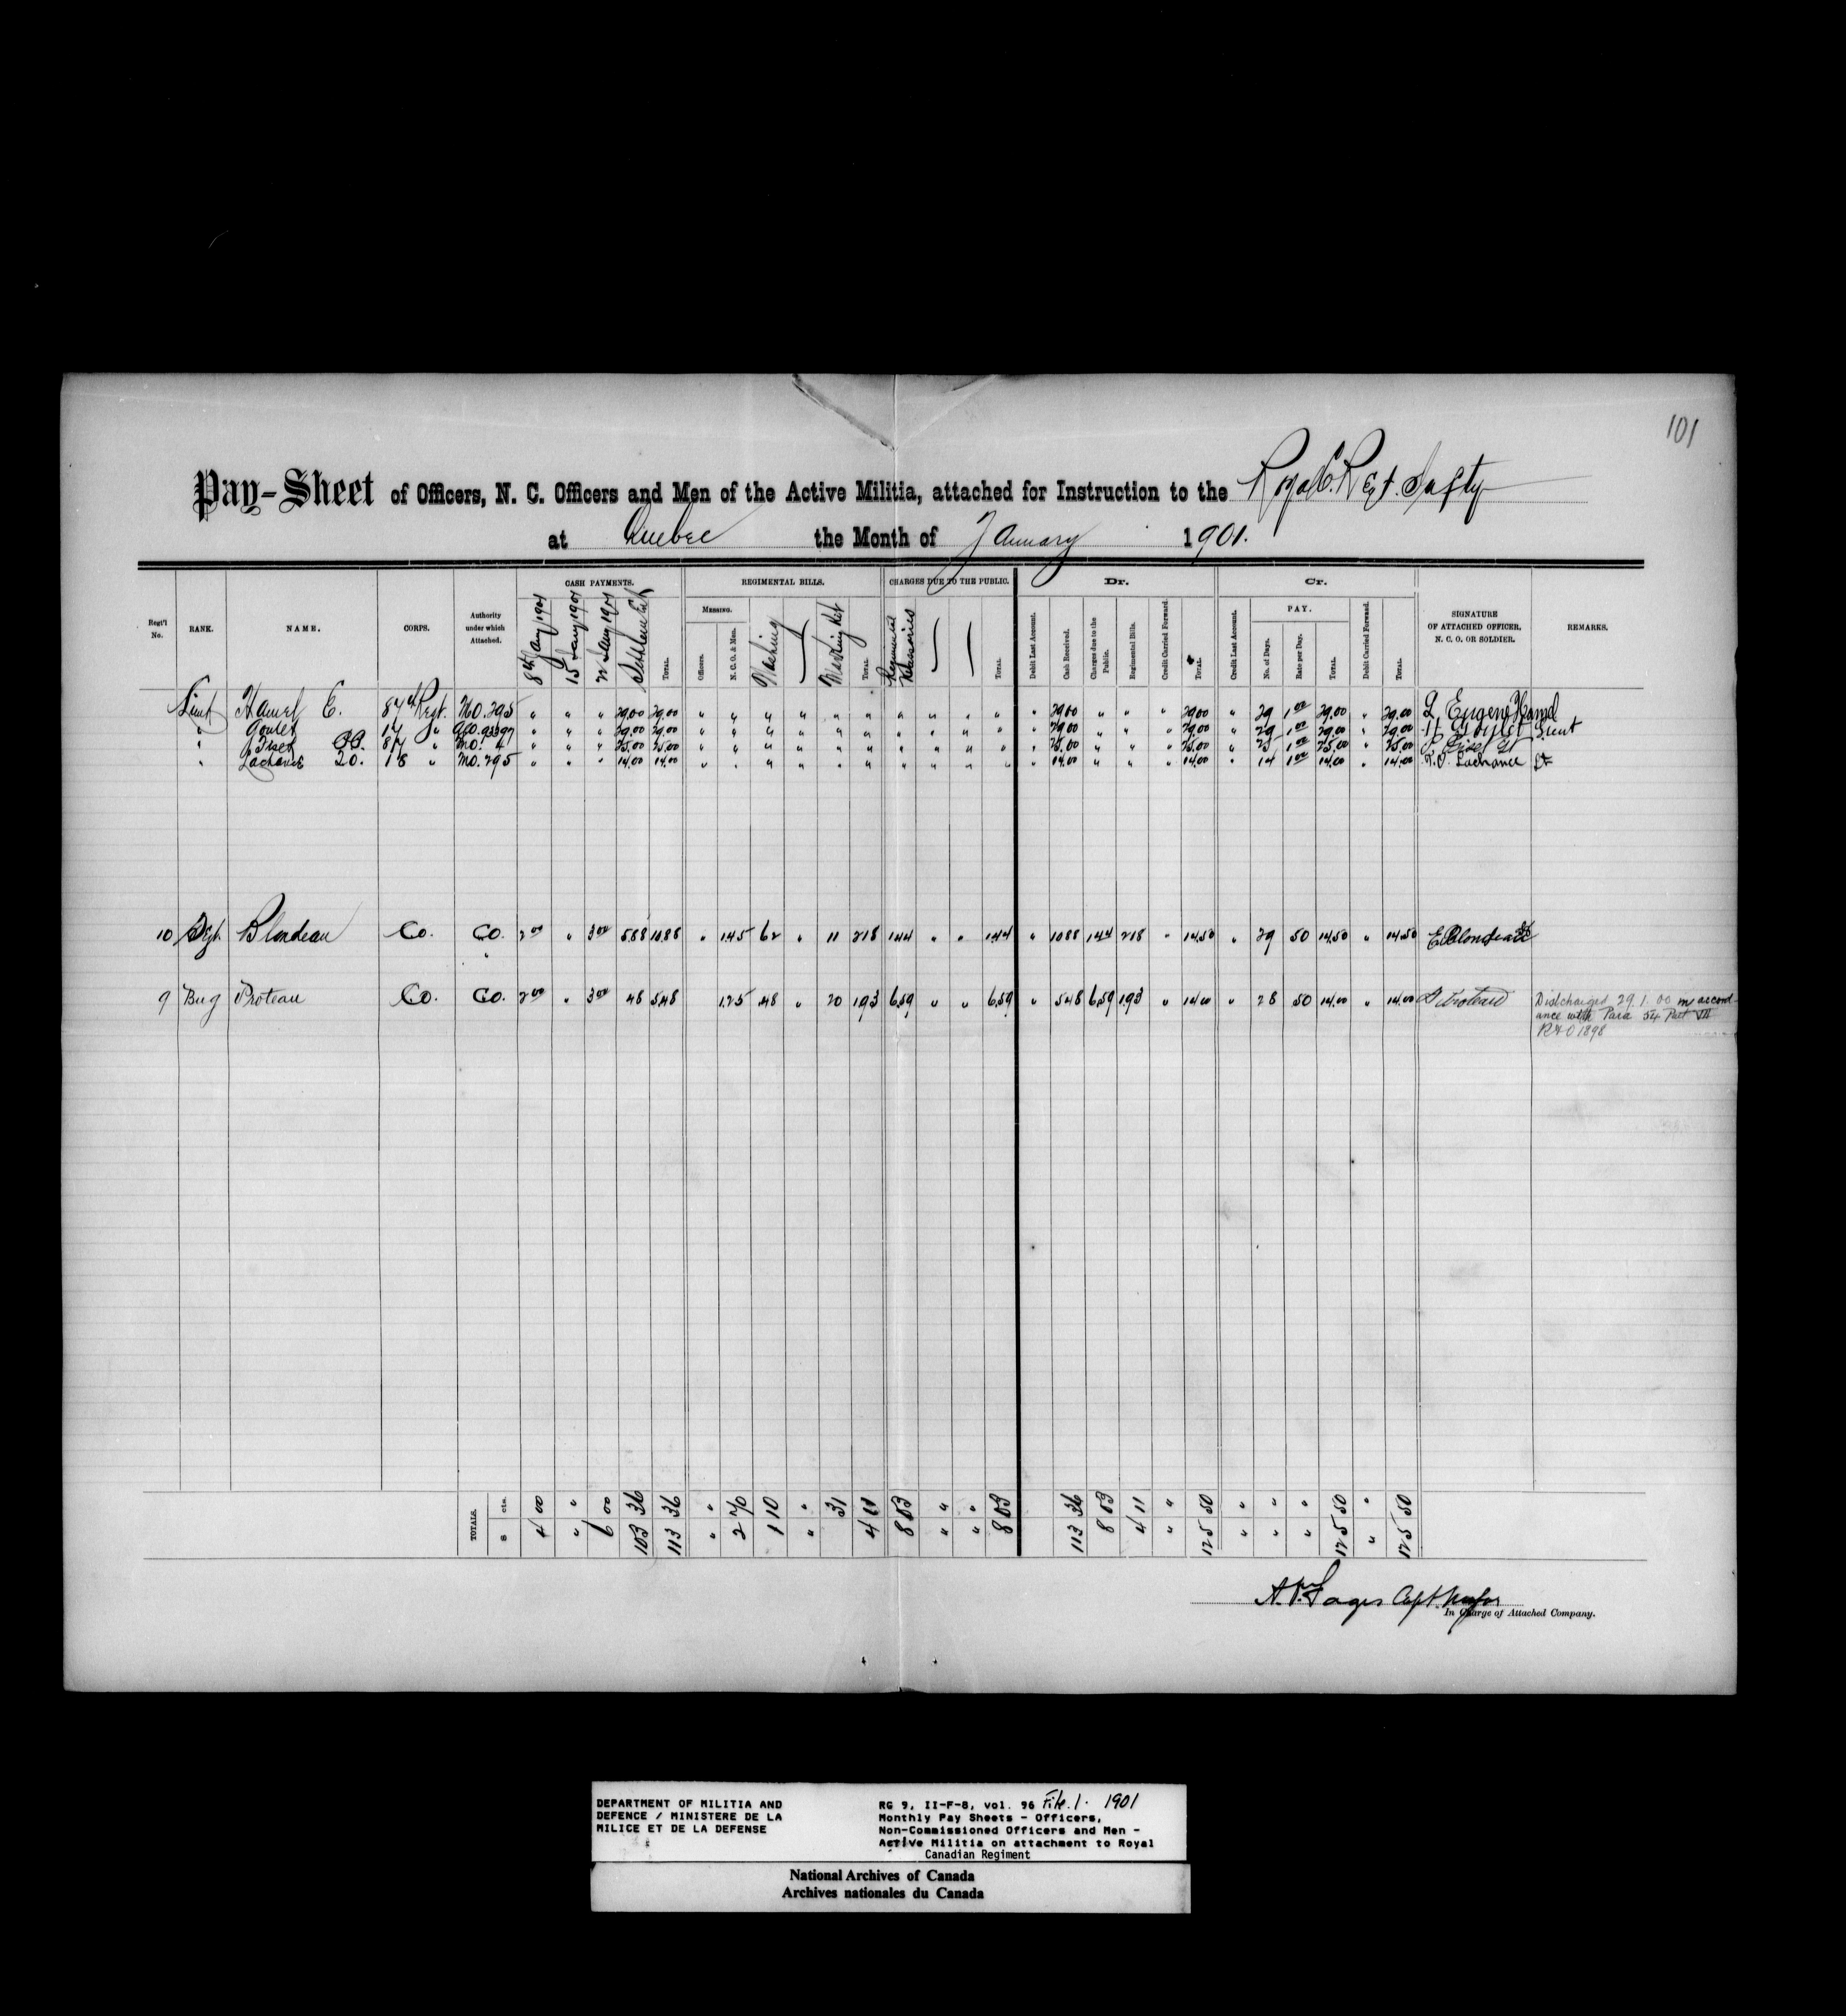 101
Pay-Sheet of Officers, N. C. Officers and Men of the Active Militia, attached for Instruction to the Royal C. Regt. Infty
at Quebec the Month of January 1901.
CASH PAYMENTS. REGIMENTAL BILLS. CHARGES DUE TO THE PUBLIC. Dr. Cr.
Regt'l No. RANK. NAME. CORPS. Authority under which Attached. 8th Jany 1901 15 Jany 1901 22 Jany 1901 Settlement TOTAL. MESSING. Officers. N. C. O. & Men. Washing TOTAL. Regimental Necessaries TOTAL Debit Last Account. Cash Received. Charges due to the Public. Regimental Bills. Credit Carried Forward. TOTAL. Credit Last Account. PAY. No. of Days. Rate per Day. TOTAL Debit Carried Forward. TOTAL. SIGNATURE OF ATTACHED OFFICER, N. C. O. OR SOLDIER. REMARKS.
Lieut Hamel E. 87th Regt. MO. 295 " " " 29.00 29.00 " " " " " " " " " " " 29.00 " " " 29.00 " 29 1 00 29.00 " 29.00 L Eugene Hamel
" Goulet 17 " " " " 29.00 29.00 " " " " " " " " " " " 29.00 " " " 29.00 " 29 1 00 29.00 " 29.00 Goulet Lieut
" Fiset 87 " MO. " " " 25.00 25.00 " " " " " " " " " " " 25.00 " " " 25.00 " 25 1 00 25.00 " 25.00 Fiset Lt
" Lachance 18 " MO. 295 " " " 14.00 14.00 " " " " " " " " " " " 14.00 " " " 14.00 " 14 1 00 14.00 " 14.00 Lachance Lt
10 Sgt. Blondeau Co. Co. 2 00 " 3 00 5.88 10.88 " 1.45 62 " 11 2 18 1.44 " " 1.44 " 10 88 1 44 2 18 " 14.50 " 29 50 14.50 " 14.50 E Blondeau
9 Bug Proteau Co. Co. 2 00 " 3 00 48 5.48 1.25 .48 " 20 1.93 6.59 " " 6.59 " 5 48 6.59 1.93 " 14 00 " 28 50 14.00 " 14.00 Proteau Discharged 29.1.00 in accord-
ance with Para 54 Part
R & O 1898
TOTALS. $ cts. 4 00 " 6 00 103 36 113 36 " 2 70 1 10 " 31 4 11 8 03 " " 8 03 113 36 8 03 4 11 " 125 50 " " " 125 50 " 125 50
Capt. Major
In Charge of Attached Company.
DEPARTMENT OF MILITIA AND
DEFENCE / MINISTERE DE LA
MILICE ET DE LA DEFENSE
RG 9, II-F-8, vol. 96 File. 1. 1901
Monthly Pay Sheets - Officers,
Non-Commissioned Officers and Men -
Active Militia on attachment to Royal
Canadian Regiment
National Archives of Canada
Archives nationales du Canada